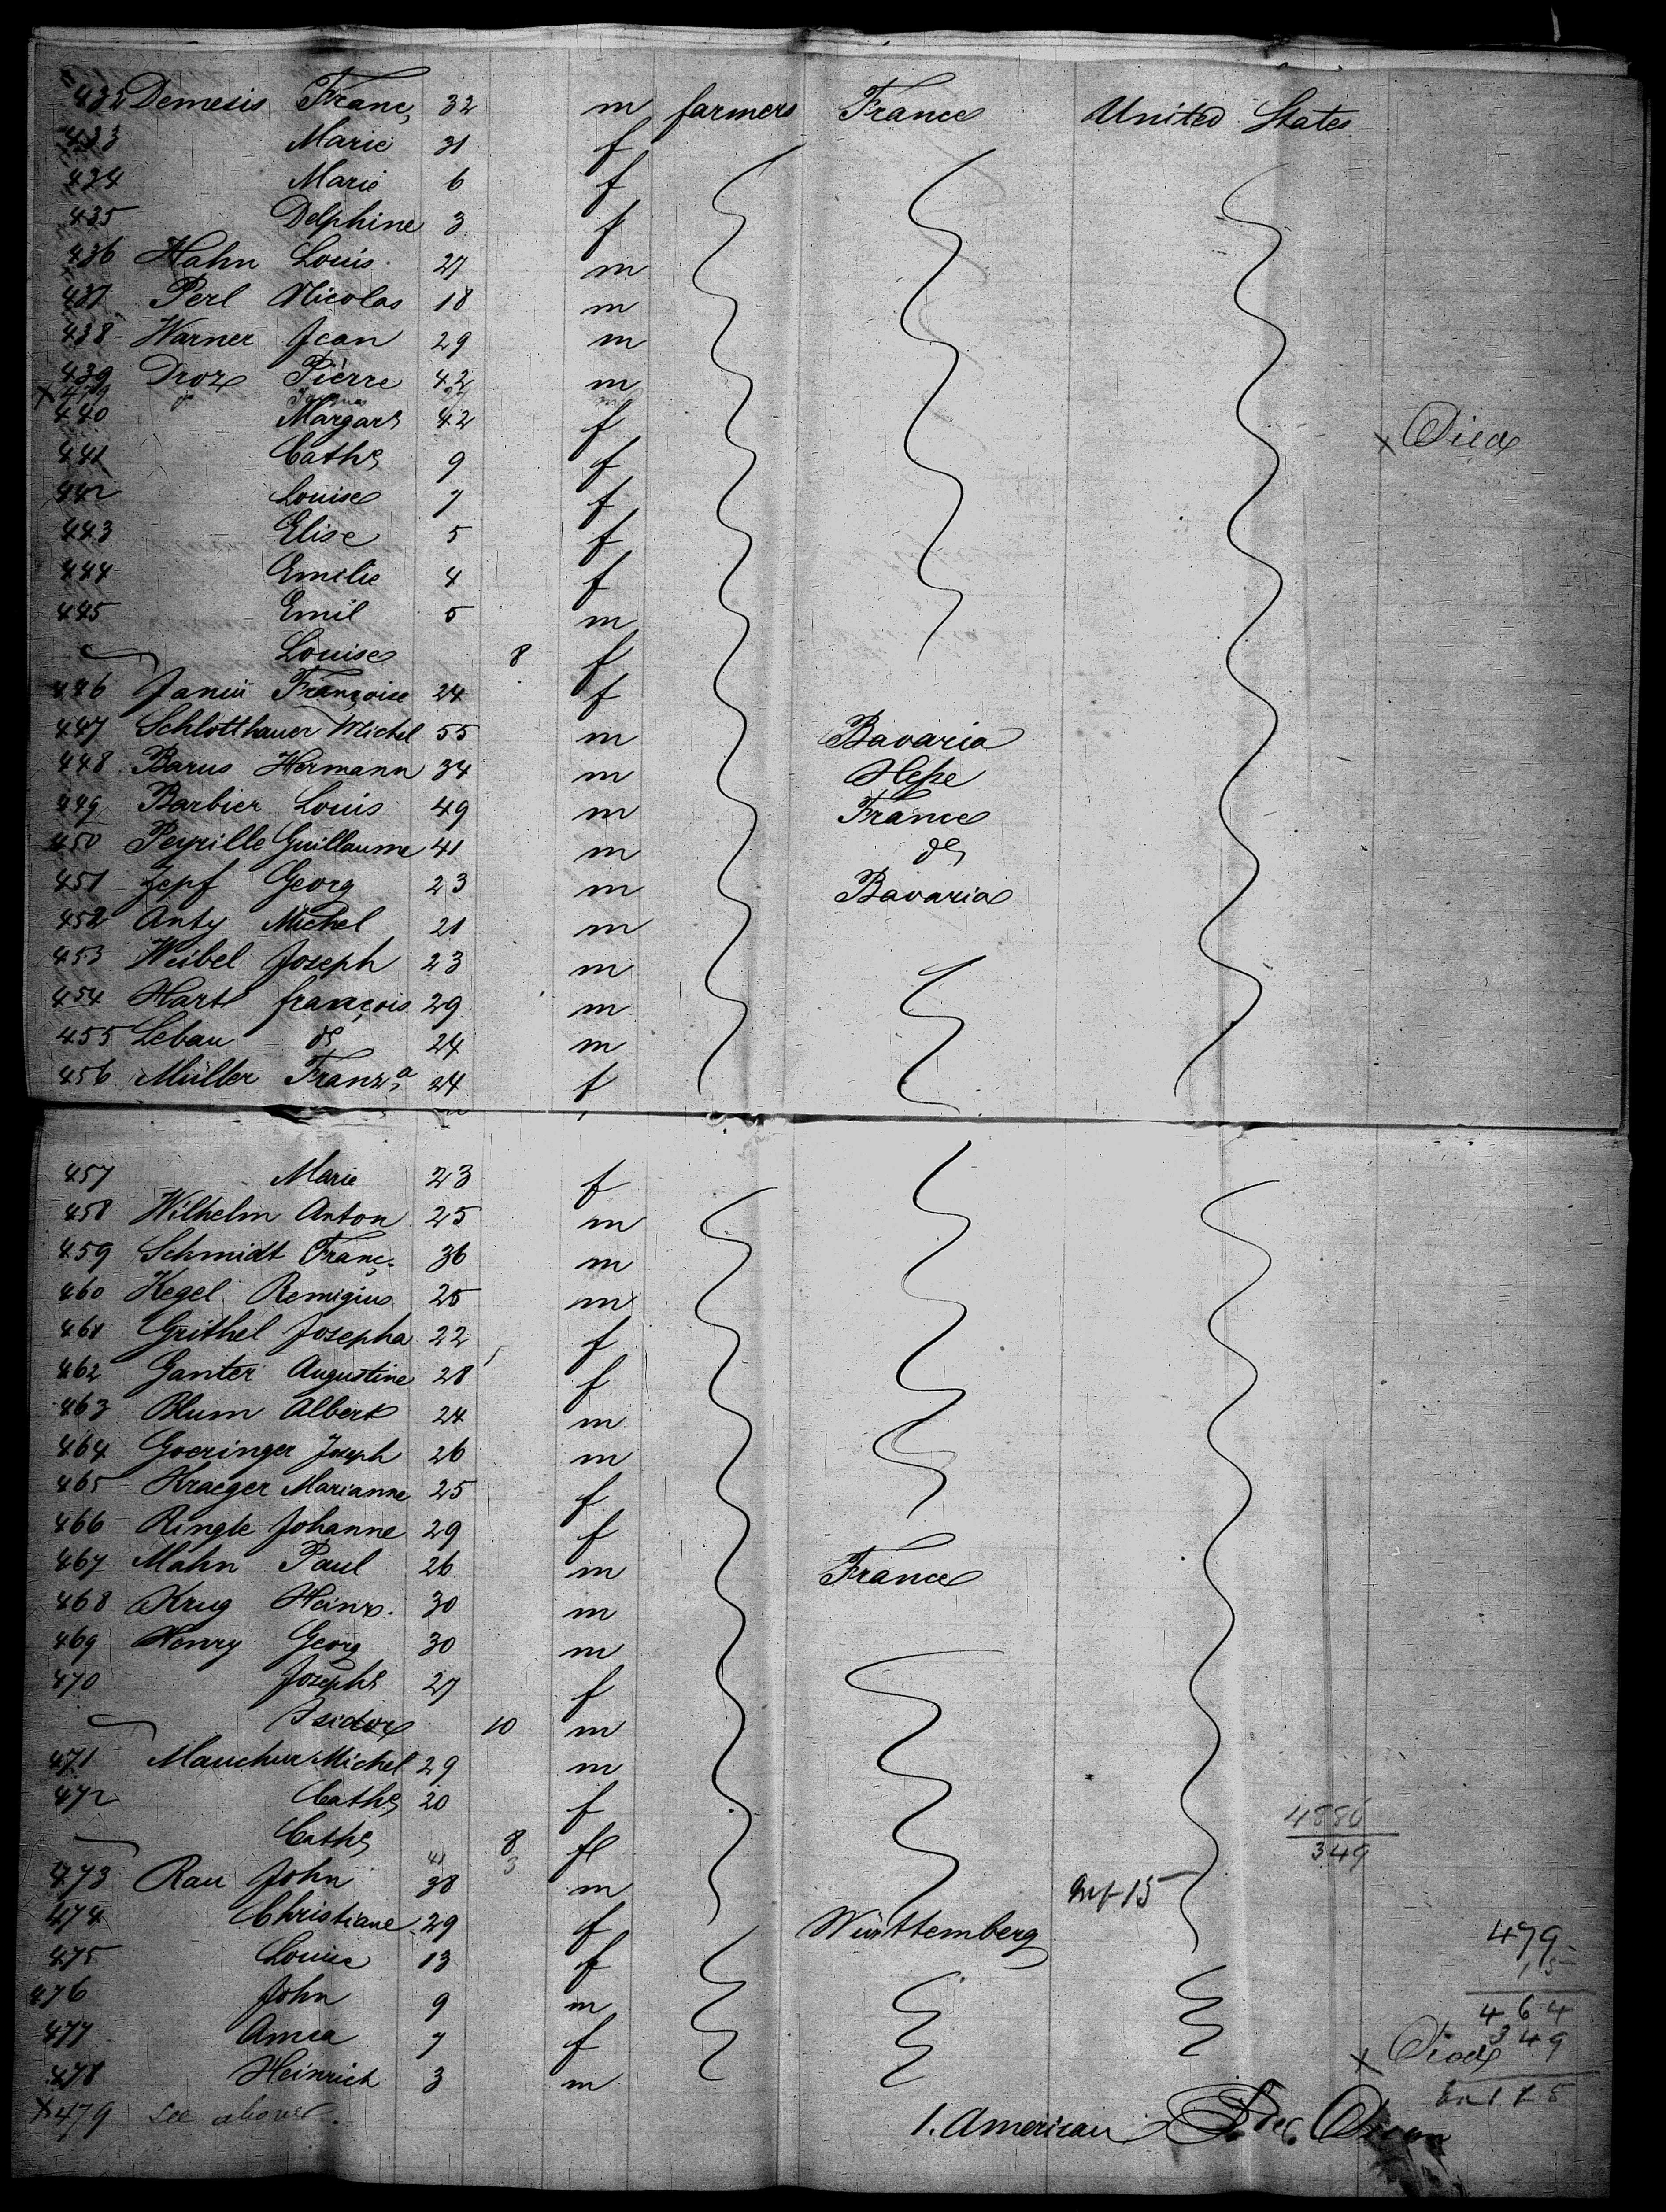 432 Demesis Franç, 32 m farmers France United States
433 Marie 31 f
434 Marie 6 f
435 Delphine 3 f
436 Hahn Louis 27 m
437 Perl Nicolas 18 m
438 Warner Jean 29 m
439 Droz Pierre 42 m
x 479 do
440 Margart 42 f x Died
441 Cathe 9 f
442 Louise 7 f
443 Elise 5 f
444 Emilie 4 f
445 Emil 5 m
Louise 8 f
446 Françoise 24 f
447 Schlotthauer Michel 55 m Bavaria
448 Barus Hermann 34 m Hesse
449 Barbier Louis 49 m France
450 Peyrille Guillaume 41 m do
451 Zepf Georg 23 m Bavaria
452 Anty Michel 21 m
453 Weibel Joseph 23 m
454 Hart françois 29 m
455 Lebau do 24 m
456 Müller Franza 24 f
457 Marie 23 f
458 Wilhelm Anton 25 m
459 Schmidt Franç. 36 m
460 Kegel Remigius 25 m
461 Grithel Josepha 22 f
462 Ganter Augustine 28 f
463 Blum Albert 24 m
464 Goeringer Joseph 26 m
465 Kraeger Marianne 25 f
466 Ringle Johanne 29 f
467 Mahn Paul 26 m France
468 Krug Heinr. 30 m
469 Henry Georg 30 m
470 Josephe 27 f
Isidore 10 m
471 Michel 29 m
472 Cathe 20 f 4886
Cathe 8 f 349
41 3
473 Rau John 38 m
474 Christiane 29 f Württemberg 479
475 Louise 13 f 15
476 John 9 m 464
477 Anna 7 f 349
478 Heinrich 3 m x Died
x 479 see above. 1. American